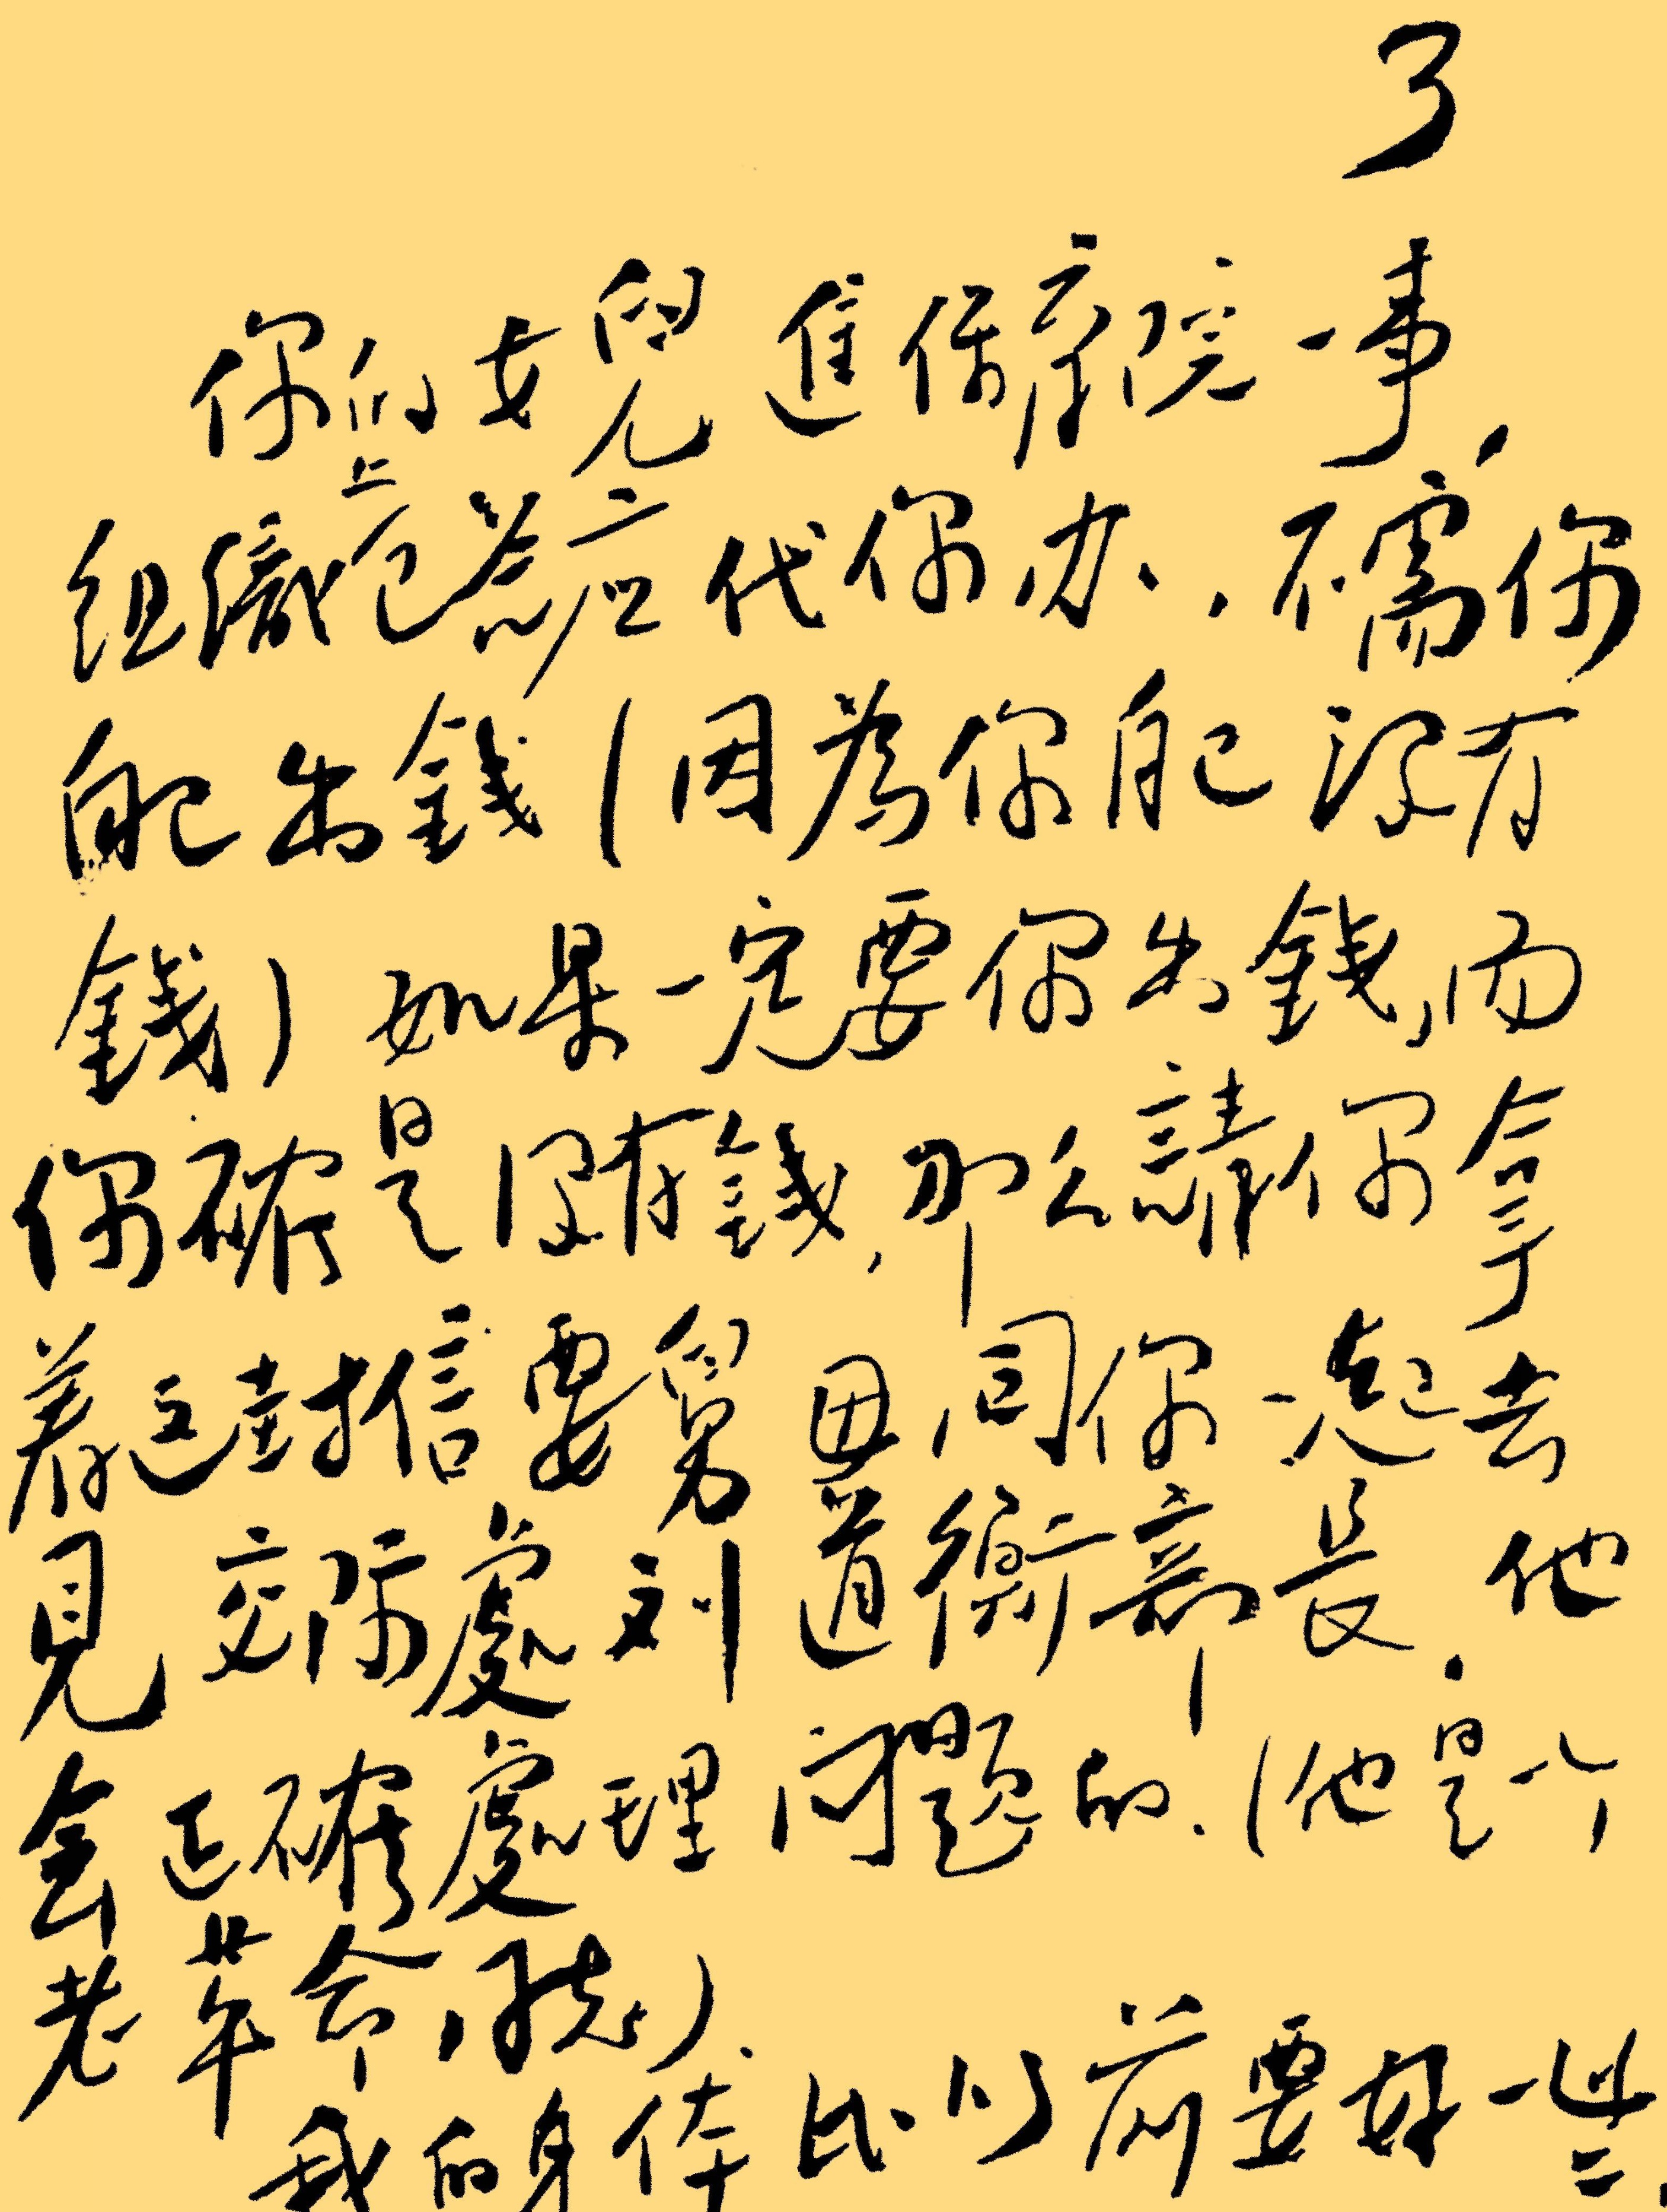 3
你的女兒進保育院一事，
組織上已答应代你办，不需你
自己出錢（因為你自己沒有
錢）如果一定要你出錢，而
你確是沒有錢，那么請你拿
着这封信要舅母同你一起去
見交际處刘道衡部長，他
会正確處理问题的.（他是个
老革命同志）.
我的身体比以前要好一些